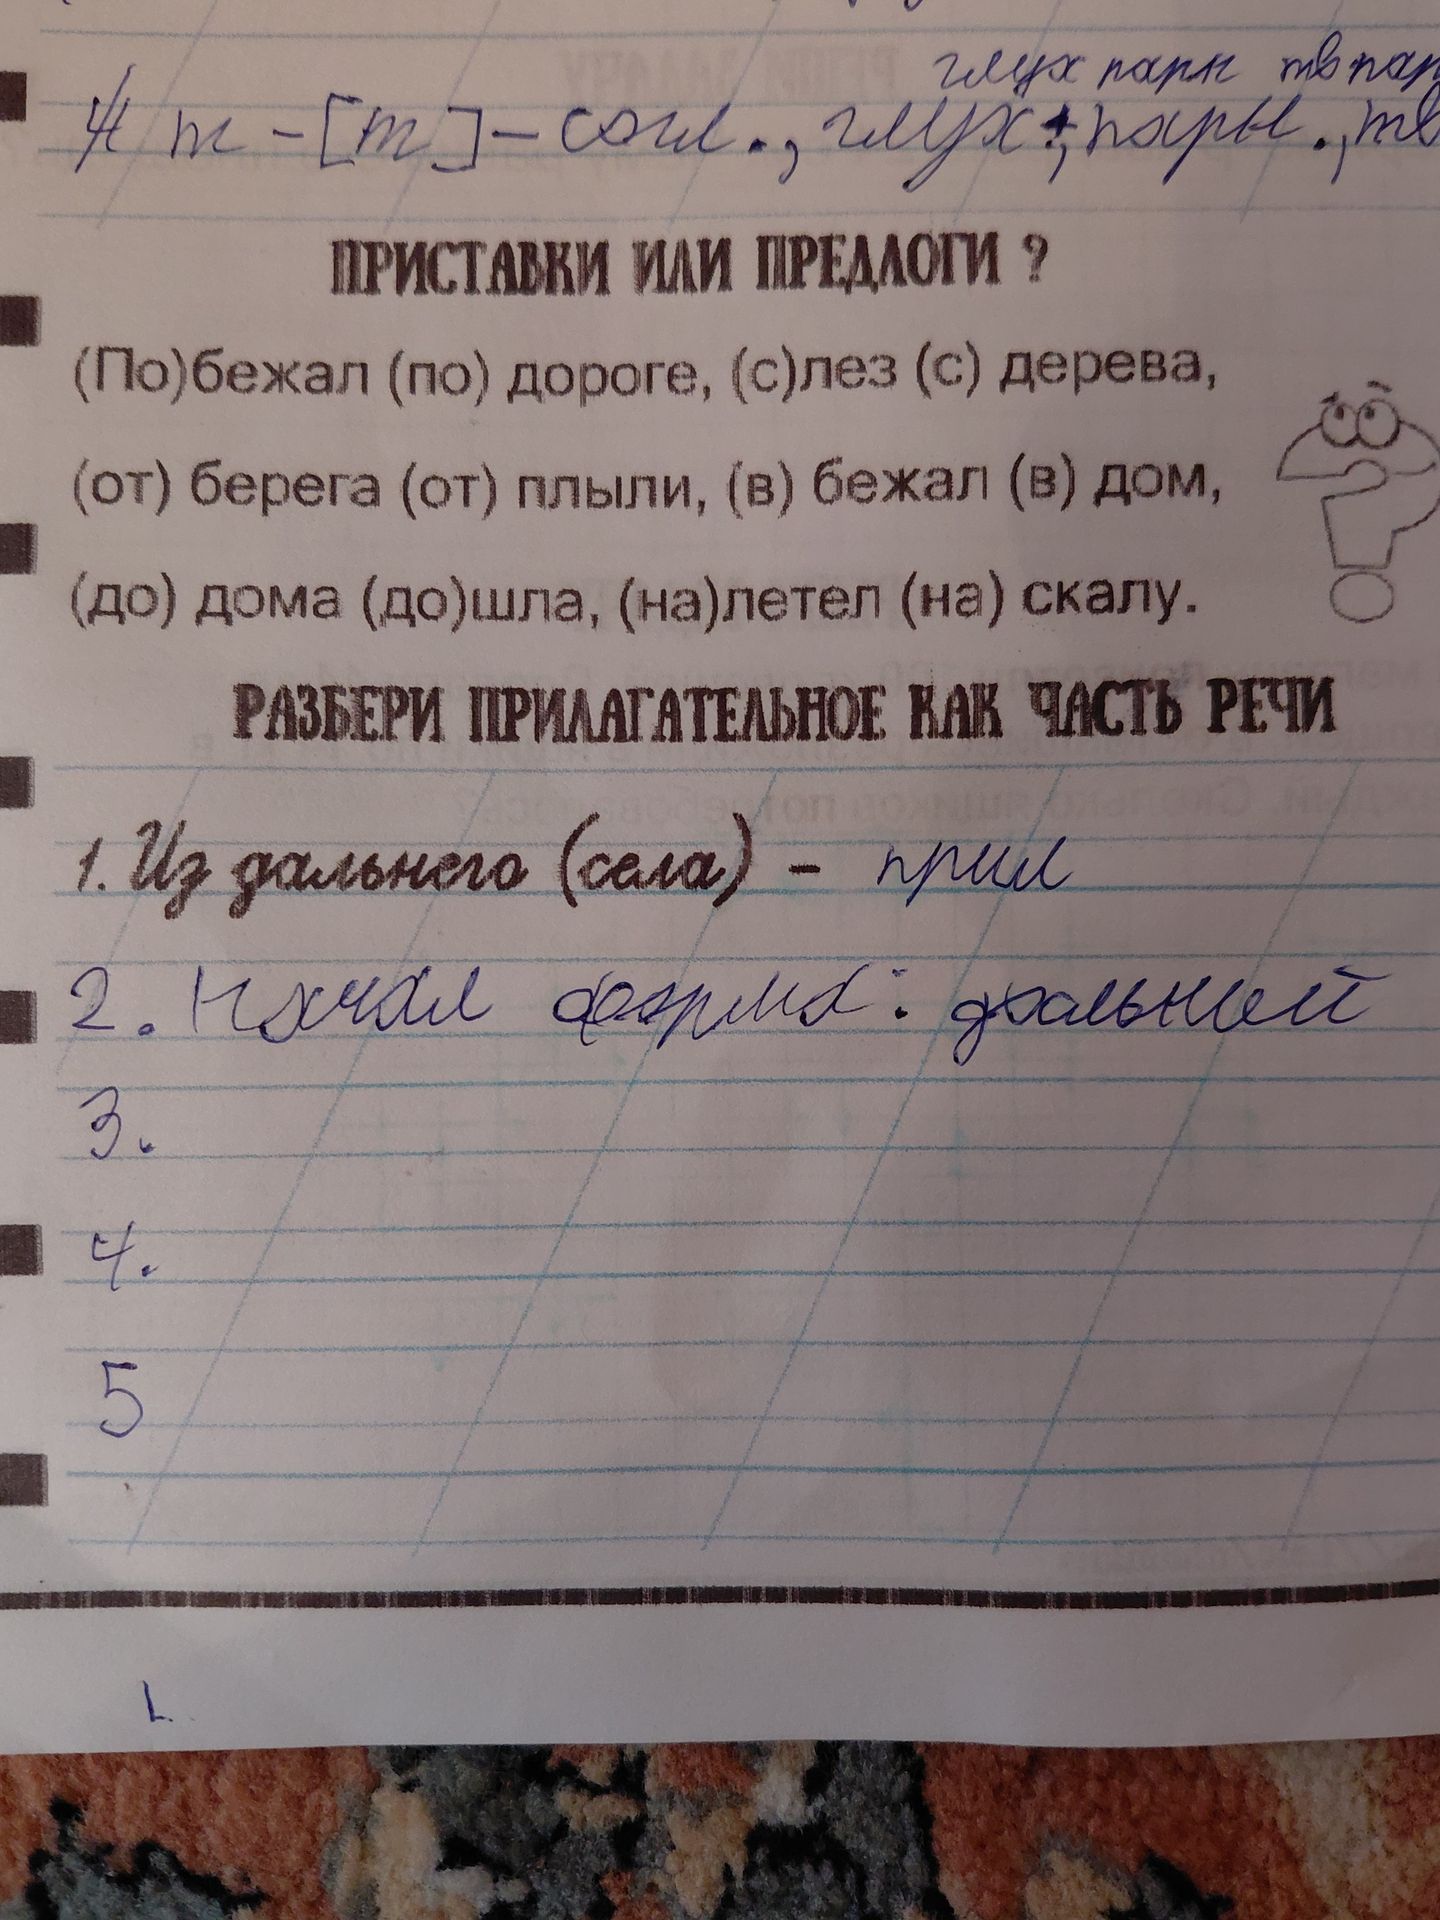 глух парн тв пар
4) т - [т] - согл., глух., парн., тв
ПРИСТАВКИ ИЛИ ПРЕДЛОГИ ?
(По)бежал (по) дороге, (с)лез (с) дерева,
(от) берега (от) плыли, (в) бежал (в) дом,
(до) дома (до)шла, (на)летел (на) скалу.
РАЗБЕРИ ПРИЛАГАТЕЛЬНОЕ КАК ЧАСТЬ РЕЧИ
1. Из дальнего (села) – прил
2. Начал форма: дальний
3.
4.
5